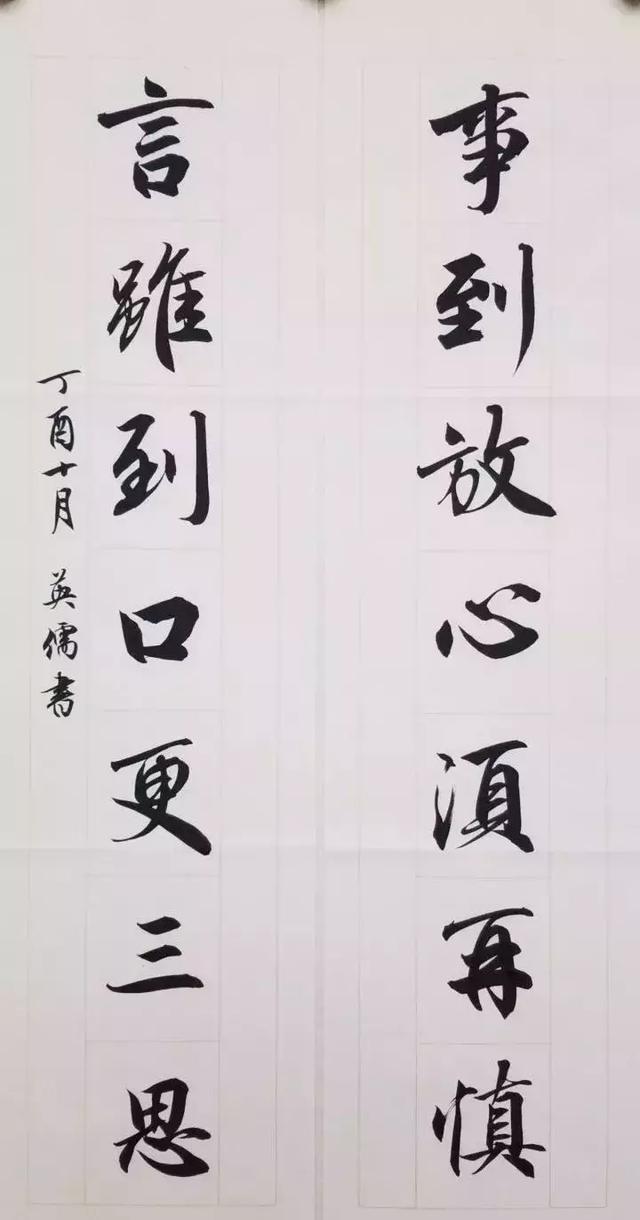 事到放心須再慎
言雖到口更三思
丁酉十月 英儒書